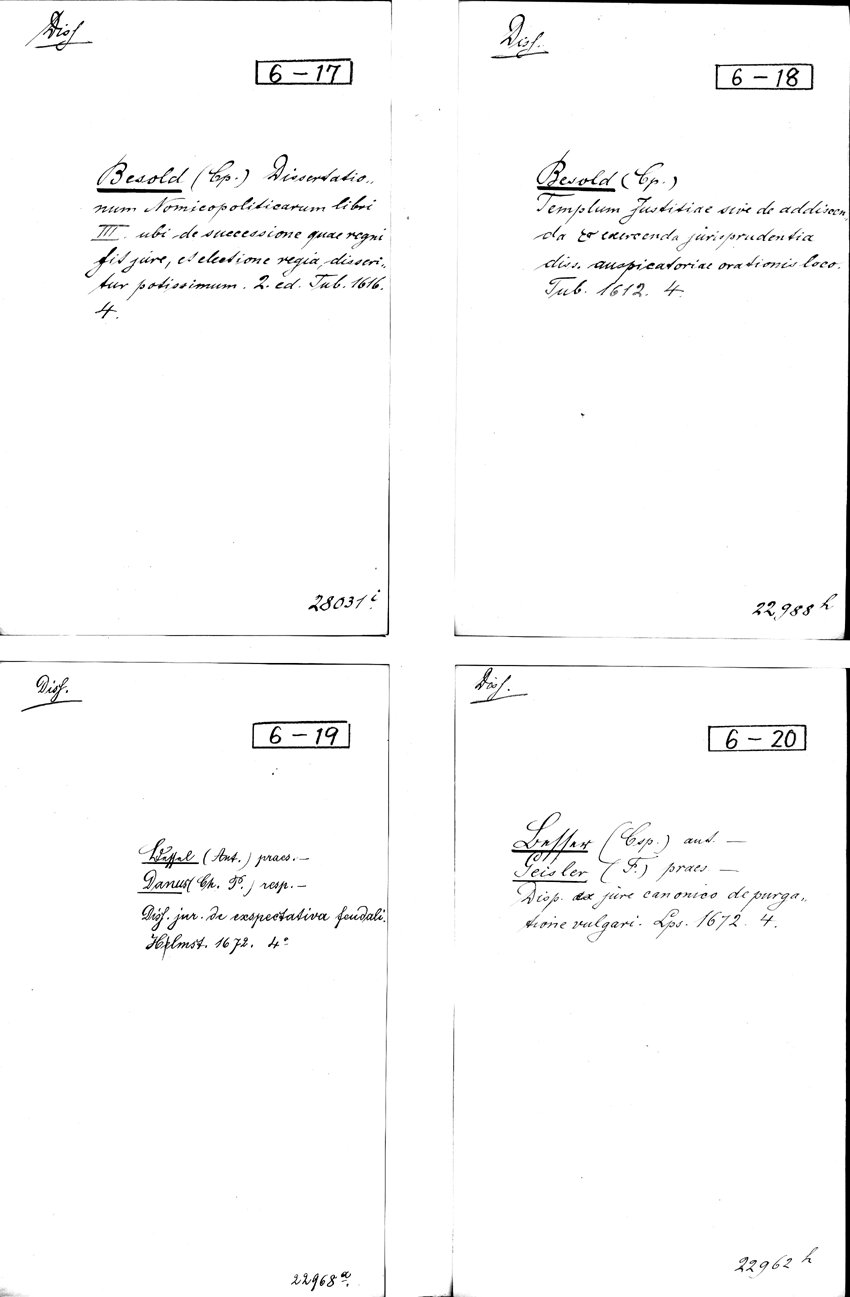 Diss
6 — 17
Besold (Cp.) Dissertatio„
num Nomicopoliticarum libri
III. ubi de successione quae regni
fit jure, et electione regia, disseri„
tur potissimum. 2. ed. Tub. 1616.
4.
28031 i.
Diss.
6 — 18
Besold (Cp.)
Templum Justitiae sive de addiscen„
da & exercenda jurisprudentia
diss. auspicatoriae orationis loco.
Tub. 1612. 4.
22,988 h
Diss.
6 — 19
(Ant.) praes. —
Danus (Ch. P.) resp. —
Diss. jur. de exspectativa feudali.
Helmst. 1672. 4°
22968 a.
Diss.
6 — 20
Besser (Csp.) aut. —
Geisler (F.) praes —
Disp. ex jure canonico de purga„
tione vulgari. Lps. 1672. 4.
22962 h